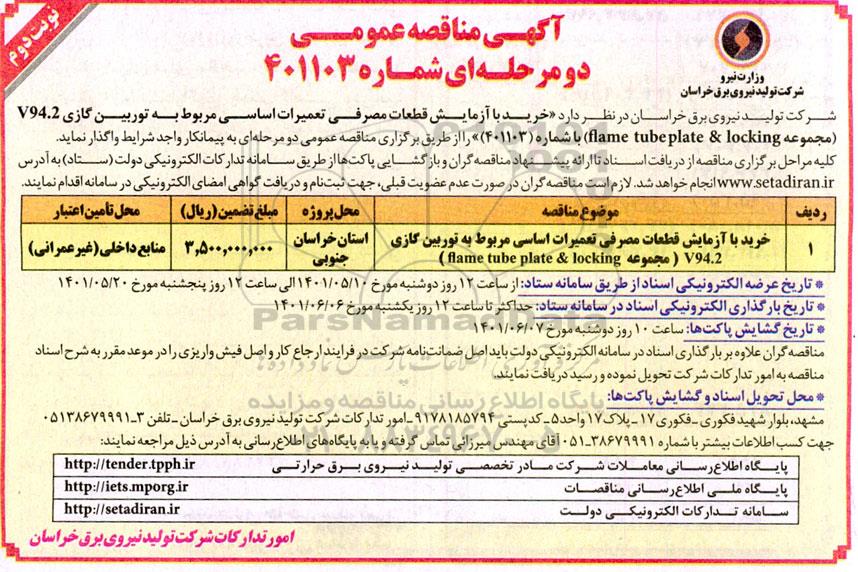 نوبت دوم
آگهی مناقصه عمومی
دو مرحله‌ای شماره ۴۰۱۱۰۳
وزارت نیرو
شرکت تولید نیروی برق خراسان
شرکت تولید نیروی برق خراسان در نظر دارد «خرید با آزمایش قطعات مصرفی تعمیرات اساسی مربوط به توربین گازی V94.2
(مجموعه flame tube plate & locking) با شماره (۴۰۱۱۰۳)» را از طریق برگزاری مناقصه عمومی دو مرحله‌ای به پیمانکار واجد شرایط واگذار نماید.
کلیه مراحل برگزاری مناقصه از دریافت اسناد تا ارائه پیشنهاد مناقصه گران و بازگشایی پاکت‌ها از طریق سامانه تدارکات الکترونیکی دولت (ستاد) به آدرس
www.setadiran.ir انجام خواهد شد. لازم است مناقصه گران در صورت عدم عضویت قبلی، جهت ثبت نام و دریافت گواهی امضای الکترونیکی در سامانه اقدام نمایند.
ردیف موضوع مناقصه محل پروژه مبلغ تضمین (ریال) محل تأمین اعتبار
۱ خرید با آزمایش قطعات مصرفی تعمیرات اساسی مربوط به توربین گازی V94.2 ( مجموعه flame tube plate & locking ) استان خراسان جنوبی ۳,۵۰۰,۰۰۰,۰۰۰ منابع داخلی (غیر عمرانی)
* تاریخ عرضه الکترونیکی اسناد از طریق سامانه ستاد: از ساعت ۱۲ روز دوشنبه مورخ ۱۴۰۱/۰۵/۱۰ الی ساعت ۱۲ روز پنجشنبه مورخ ۱۴۰۱/۰۵/۲۰
* تاریخ بارگذاری الکترونیکی اسناد در سامانه ستاد: حداکثر تا ساعت ۱۲ روز یکشنبه مورخ ۱۴۰۱/۰۶/۰۶
* تاریخ گشایش پاکت‌ها: ساعت ۱۰ روز دوشنبه مورخ ۱۴۰۱/۰۶/۰۷
مناقصه گران علاوه بر بارگذاری اسناد در سامانه الکترونیکی دولت باید اصل ضمانت نامه شرکت در فرایند ارجاع کار و اصل فیش واریزی را در موعد مقرر به شرح اسناد
مناقصه به امور تدارکات شرکت تحویل نموده و رسید دریافت نمایند.
* محل تحویل اسناد و گشایش پاکت‌ها:
مشهد، بلوار شهید فکوری - فکوری ۱۷ - پلاک ۱۷ واحد ۵ - کدپستی ۹۱۷۸۱۸۵۷۹۴ - امور تدارکات شرکت تولید نیروی برق خراسان - تلفن ۳-۰۵۱۳۸۶۷۹۹۹۱
جهت کسب اطلاعات بیشتر با شماره ۳۸۶۷۹۹۹۱-۰۵۱ آقای مهندس میرزائی تماس گرفته و یا به پایگاه‌های اطلاع رسانی به آدرس ذیل مراجعه نمایند:
پایگاه اطلاع رسانی معاملات شرکت مادر تخصصی تولید نیروی برق حرارتی http://tender.tpph.ir
پایگاه ملی اطلاع رسانی مناقصات http://iets.mporg.ir
سامانه تدارکات الکترونیکی دولت http://setadiran.ir
امور تدارکات شرکت تولید نیروی برق خراسان
ParsNamadData
پایگاه اطلاع رسانی مناقصه و مزایده